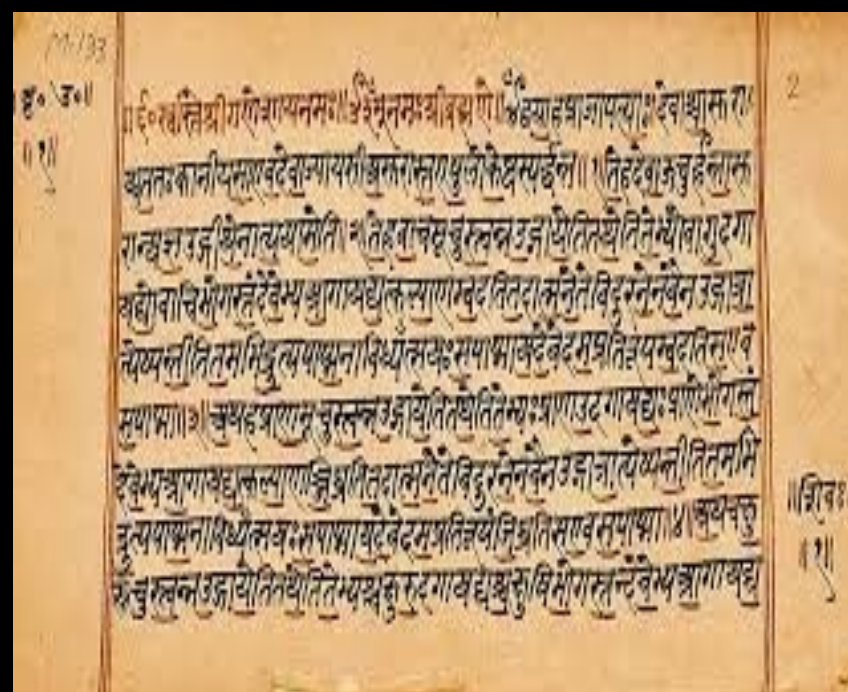 बृ॰ उ॰॥
॥१॥
2
॥६०स्वस्तिश्रीगणेशायनमः॥ॐनमःश्रीब्रह्मणे॥ॐद्वयाहप्राजापत्याःदेवाश्चासुरा
श्चततःकानीयसाएवदेवाज्यायसाअसुरास्तएषुलोकेष्वस्पर्द्धन्त॥१॥तेहदेवाऊचुर्हन्तासु
रान्यज्ञउद्गीथेनात्ययामेति॥२॥तेहवाचमूचुस्त्वन्नउद्गायेतितथेतितेभ्योवागुदगा
यद्योवाचिभोगस्तंदेवेभ्यआगायद्यत्कल्याणम्वदतितदात्मनेतेविदुरनेनवैनउद्गात्रा
त्येष्यन्तीतितमभिद्रुत्यपाप्मनाविध्यन्त्सयःसपाप्मायदेवेदमप्रतिरूपम्वदतिसएव
सपाप्मा॥३॥अथहप्राणमूचुस्त्वन्नउद्गायेतितथेतितेभ्यःप्राणउदगायद्यःप्राणेभोगस्तं
देवेभ्यआगायद्यत्कल्याणञ्जिघ्रतितदात्मनेतेविदुरनेनवैनउद्गात्रात्येष्यन्तीतितमभि
द्रुत्यपाप्मनाविध्यन्त्सयःसपाप्मायदेवेदमप्रतिरूपंजिघ्रतिसएवसपाप्मा॥४॥अथचक्षु
रूचुस्त्वन्नउद्गायेतितथेतितेभ्यश्चक्षुरुदगायद्यश्चक्षुषिभोगस्तन्देवेभ्यआगायद्य
॥शिवः
॥१॥